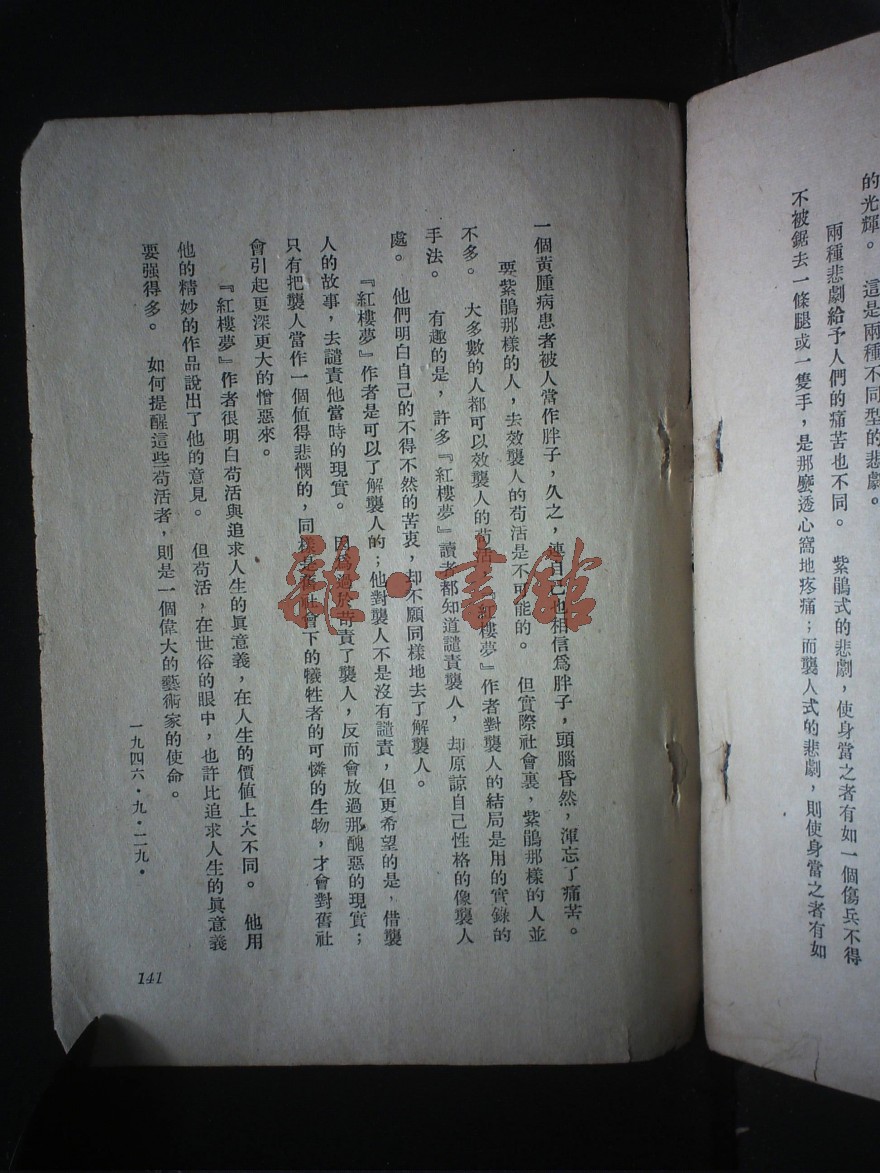 的光輝。 這是兩種不同型的悲劇。
兩種悲劇給予人們的痛苦也不同。 紫鵑式的悲劇，使身當之者有如一個傷兵不得
不被鋸去一條腿或一隻手，是那麼透心窩地疼痛；而襲人式的悲劇，則使身當之者有如
一個黃腫病患者被人當作胖子，久之，連自己也相信爲胖子，頭腦昏然，渾忘了痛苦。
要紫鵑那樣的人，去效襲人的苟活是不可能的。 但實際社會裏，紫鵑那樣的人並
不多。 大多數的人都可以效襲人的苟活『紅樓夢』作者對襲人的結局是用的實錄的
手法。 有趣的是，許多『紅樓夢』讀者都知道譴責襲人，却原諒自己性格的像襲人
處。 他們明白自己的不得不然的苦衷，却不願同樣地去了解襲人。
『紅樓夢』作者是可以了解襲人的；他對襲人不是沒有譴責，但更希望的是，借襲
人的故事，去譴責他當時的現實。 因爲過於苛責了襲人，反而會放過那醜惡的現實；
只有把襲人當作一個值得悲憫的，同樣是舊社會下的犧牲者的可憐的生物，才會對舊社
會引起更深更大的憎惡來。
『紅樓夢』作者很明白苟活與追求人生的眞意義，在人生的價値上大不同。 他用
他的精妙的作品說出了他的意見。 但苟活，在世俗的眼中，也許比追求人生的眞意義
要强得多。 如何提醒這些苟活者，則是一個偉大的藝術家的使命。
一九四六·九·二九·
141
雜·書館